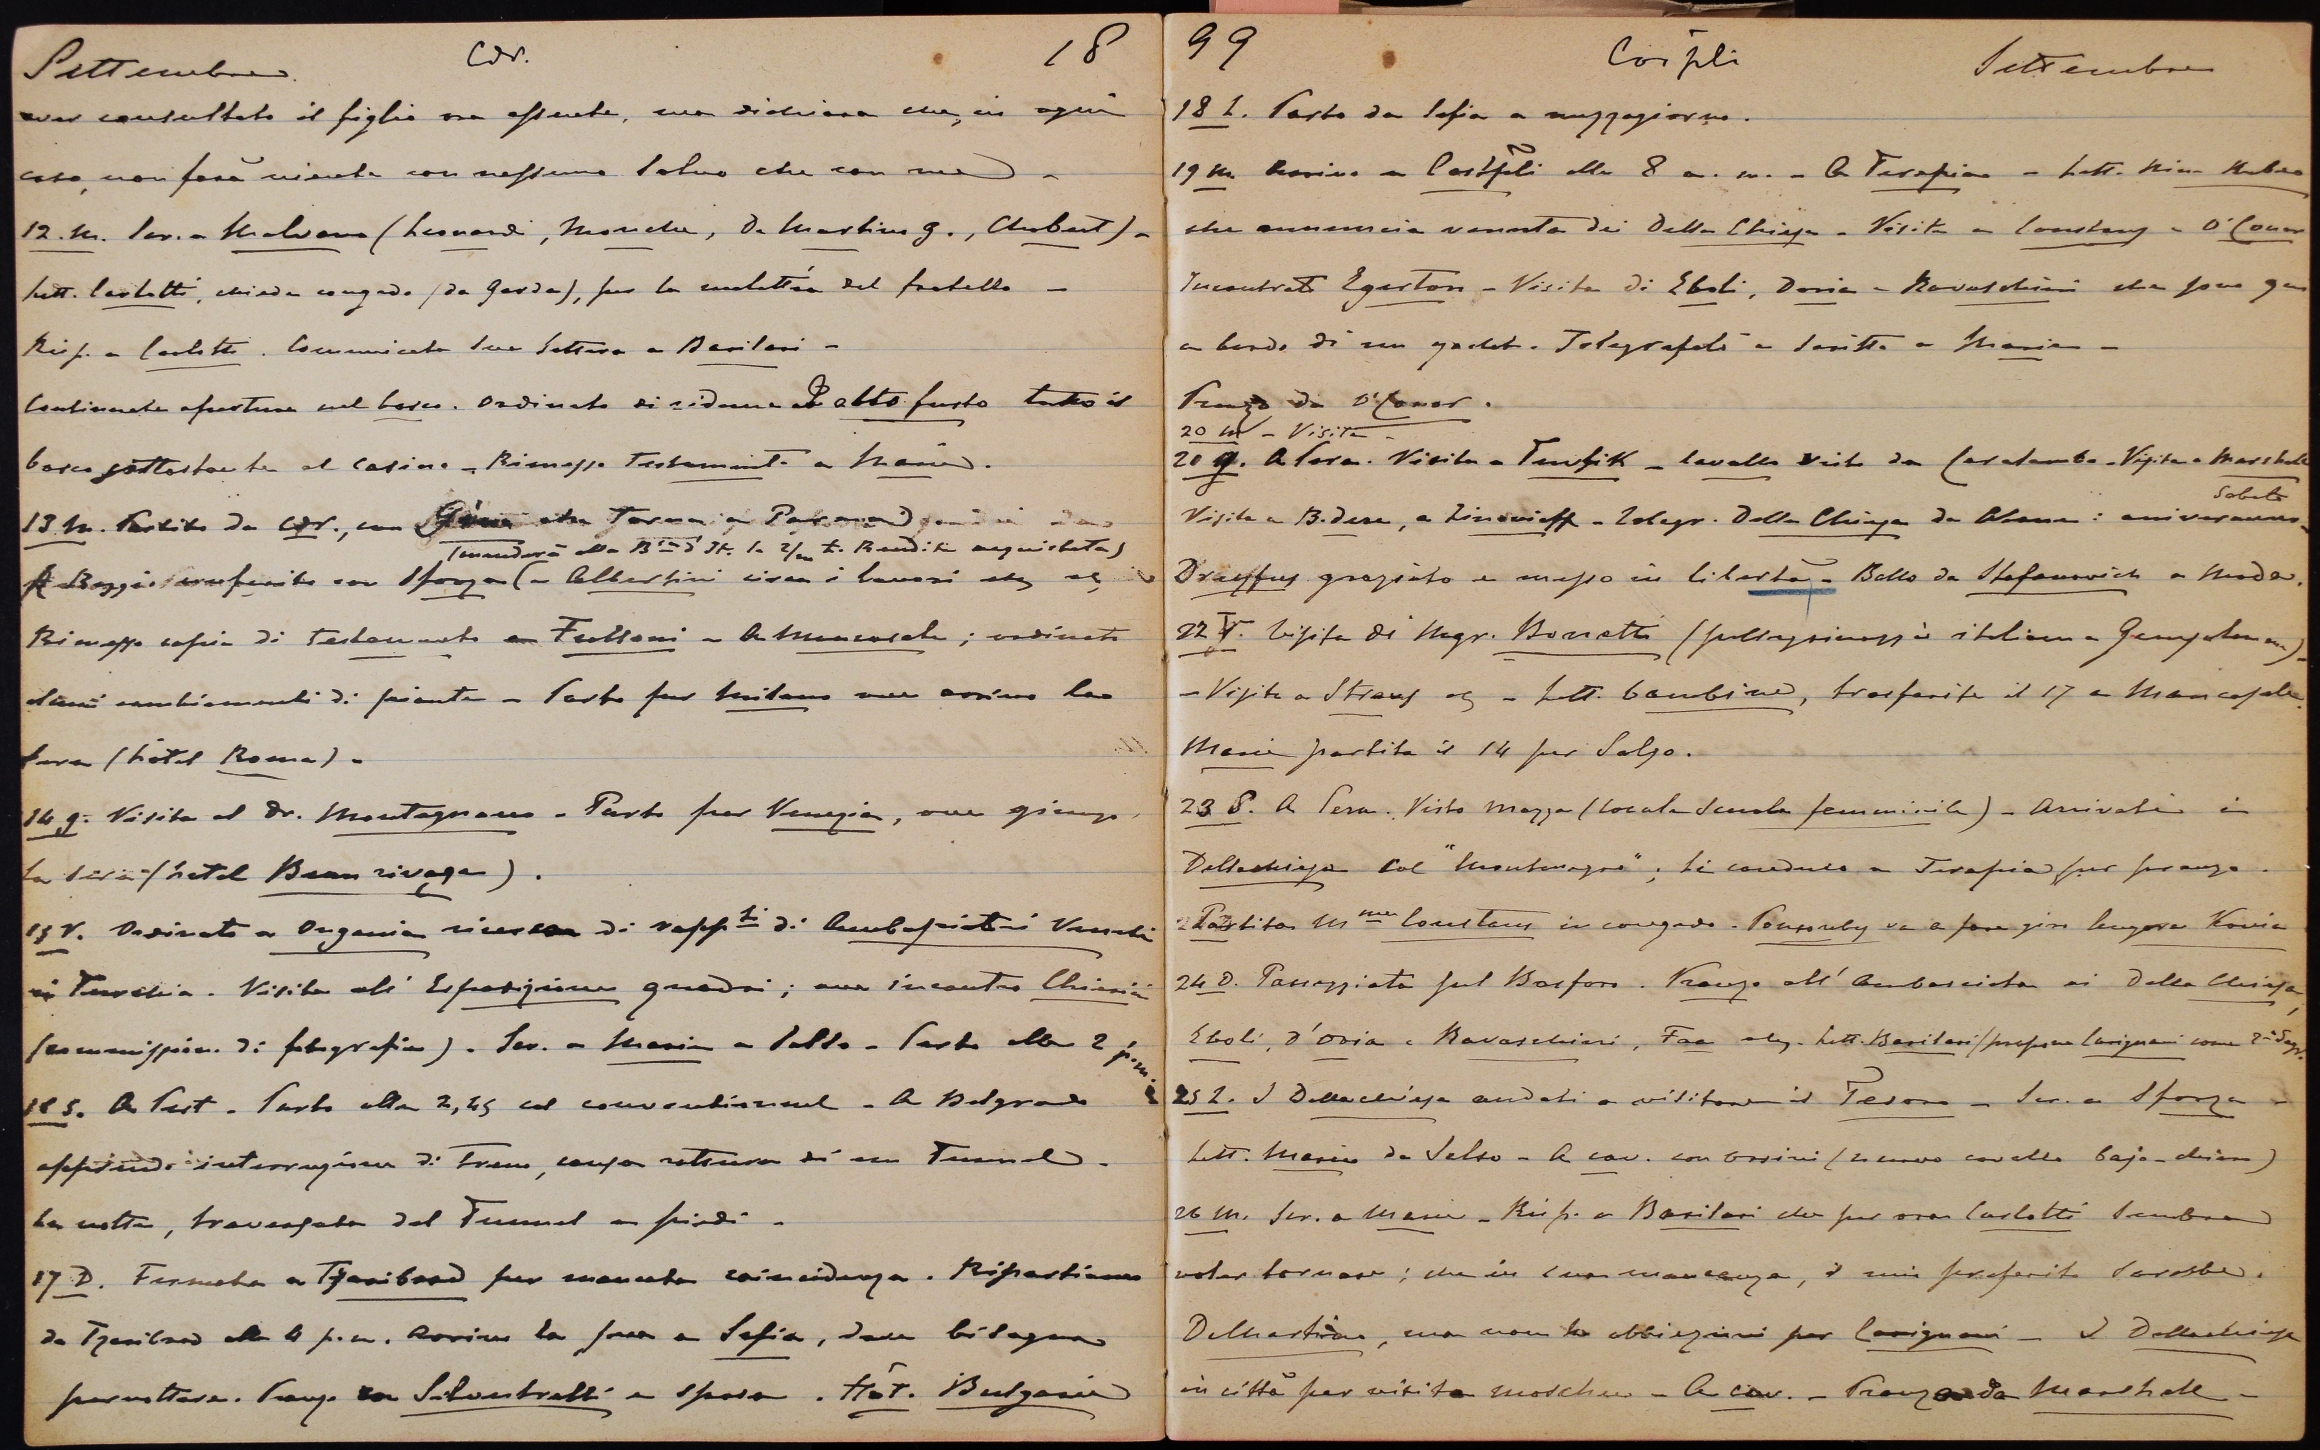 Settembre. Cdr. 18
aver consultato il figlio ora assente, ma dichiara che, in ogni
caso, non farà niente con nessuno salvo che con me -
12. M. Scr. a Malvano (Leonardi, , De Martino G., Chubert) -
Lett. Carlotti, chiede congedo (da Garda), per la malattia del fratello -
Risp. a Carlotti. Comunicata sua lettera a Barilari -
Continuate aperture nel bosco. Ordinato di ridurre ad alto fusto tutto il
bosco sottostante al casino - Rimesso Testamento a Marie.
13 M. Partito da Cdr., con che torna a
(manderà alla B. d'It. la Rendita acquistata)
A Reggio conferito con Sforza (e Albertini circa i lavori
Rimesso copia di testamento a - A Mancasale; ordinato
alcuni cambiamenti di piante - Parto per Milano ove arrivo la
sera (hôtel Roma) -
14 g. Visita al Dr. Montagnano - Parto per Venezia, ove giungo
la sera (hotel Beau rivage).
15 V. Ordinato a Ongania ricerca di rapp.ti di Ambasciatori Veneti
in Turchia. Visita all' Esposizione quadri; ove incontro
(commissione di fotografie). Scr. a Marie a Salso - Parto alle 2 p.m.
16 S. A Pest - Parto alle 2,45 col conventionnel - A Belgrado
apprendo interruzione di treno, causa rottura di un Tunnel -
La notte, traversata del Tunnel a piedi -
17 D. Fermata a Tzaribrod per mancata coincidenza. Ripartiamo
da Tzaribrod alle 4 p.m. Arrivo la sera a Sofia, dove bisogna
pernottare. Pranzo con Silvestrelli e sposa. Hôt. Bulgarie
99 Cospli Settembre
18 L. Parto da Sofia a mezzogiorno.
19 M Arrivo a Costpli alle 8 a.m. - A Terapia - Lett. Nina
che annuncia venuta dei Della Chiesa - Visita a Constans e O'Conor
Incontrato Egerton - Visita di Eboli, Doria e Ravaschieri che sono qui
a bordo di un yacht. Telegrafato e scritto a Marie -
Pranzo da O'Conor.
20 M - Visita -
20 g. A Pera. Visita a Tewfik - Cavallo visto da Caralambo - Visita a Marshall
Visita a , a Zinovieff - Telegr. Della Chiesa da Atene: arriveranno sabato
Dreyfus graziato e messo in libertà - Ballo da Stefanovich a Moda.
22 V. Visita di Mgr. Bonetti (pellegrinaggio italiano a Gerusalemme) -
- Visita a Straus - Lett. bambine, trasferite il 17 a Mancasale.
Marie partita il 14 per Salso.
23 S. A Pera. Visto Mazza (locale scuola femminile) - Arrivati i
Dellachiesa col "Montmagne"; li conduco a Terapia per pranzo.
Partita Mme Constans in congedo. Ponsonby va a fare giro Angora Konia
24 D. Passeggiata sul Bosforo. Pranzo all' Ambasciata ai Della Chiesa,
Eboli, d'Oria e Ravaschieri, Faa Lett. Barilari (propone Carignani come 2° Segr.
25 L. I Dellachiesa andati a visitare il Tesoro - Scr. a Sforza -
Lett. Marie da Salso - A cav. con Orsini (nuovo cavallo bajo-chiaro)
26 M. Scr. a Marie - Risp. a Barilari che per ora Carlotti sembra
voler tornare; che in sua mancanza, il mio preferito sarebbe
DeMartino, ma non ho obbiezioni per Carignani - I Dellachiesa
in città per visita moschee - A cav. - Pranzo da Marshall -